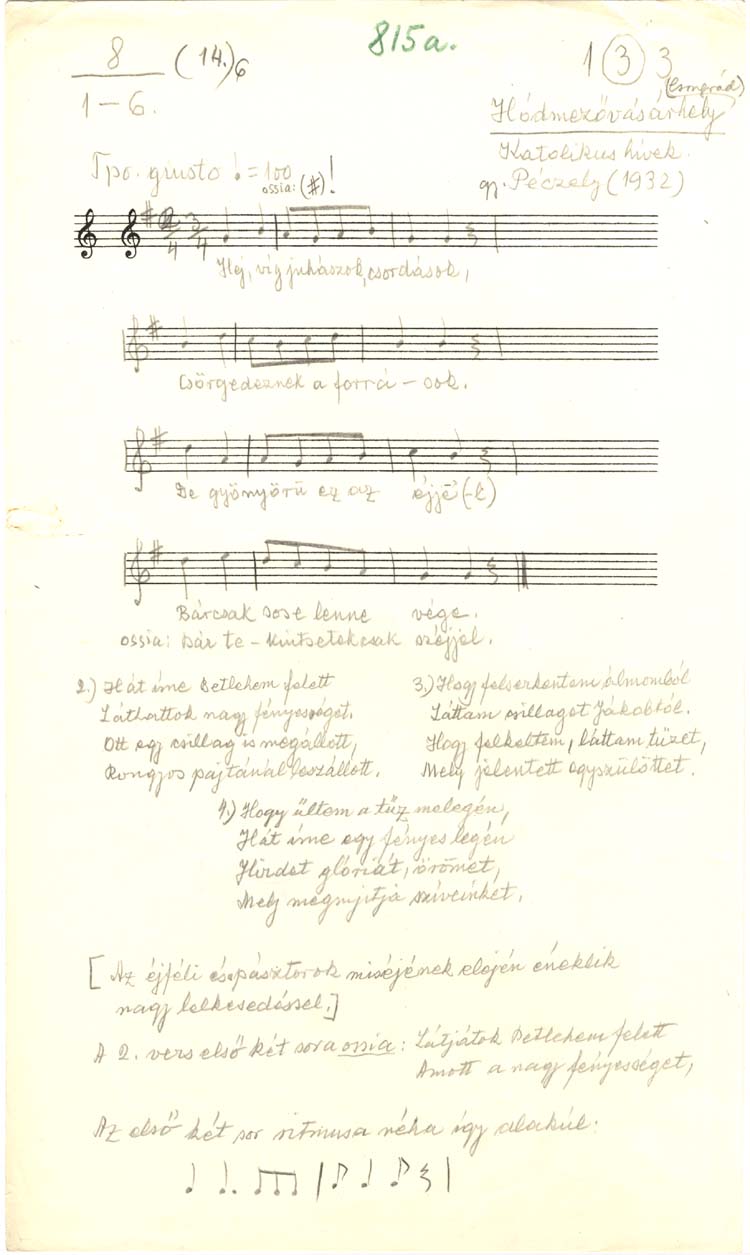 815a.
8 (14.)6
1 (3) 3
1-6.
(Csongrád)
Hódmezővásárhely
Katolikus hívek.
Tpo. giusto ♩=100
ossia: (#)!
gy. Péczely (1932)
2/4 3/4
Hej, víg juhászok, csordások,
Csörgedeznek a forrá-sok.
De gyönyörü ez az éjjé(-l)
Bárcsak sose lenne vége.
ossia: Bár te-kintsetek csak széjjel.
2.) Hát íme Betlehem felett
Láthattok nagy fényességet.
Ott egy csillag is megállott,
Rongyos pajtánál leszállott.
3.) Hogy felserkentem álmomból
Láttam csillagot Jákobtól.
Hogy felkeltem, láttam tüzet,
Mely jelentett egyszülöttet.
4.) Hogy ültem a tűz melegén,
Hát íme egy fényes legén
Hirdet glóriát, örömet,
Mely megnyitja szíveinket.
[Az éjféli és pásztorok miséjének elején éneklik
nagy lelkesedéssel.]
A 2. vers első két sora ossia: Látjátok Betlehem felett
Amott a nagy fényességet,
Az első két sor ritmusa néha így alakúl: